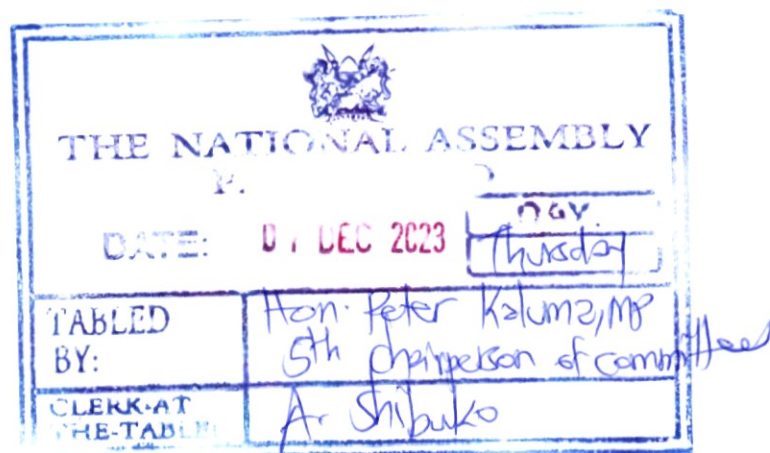 THE NATIONAL ASSEMBLY
P.
DATE: 07 DEC 2023
DAY.
Thursday
TABLED BY:
Hon. Peter Kaluma, MP
5th Chairperson of committees
CLERK-AT THE-TABLE
A. Shibuko